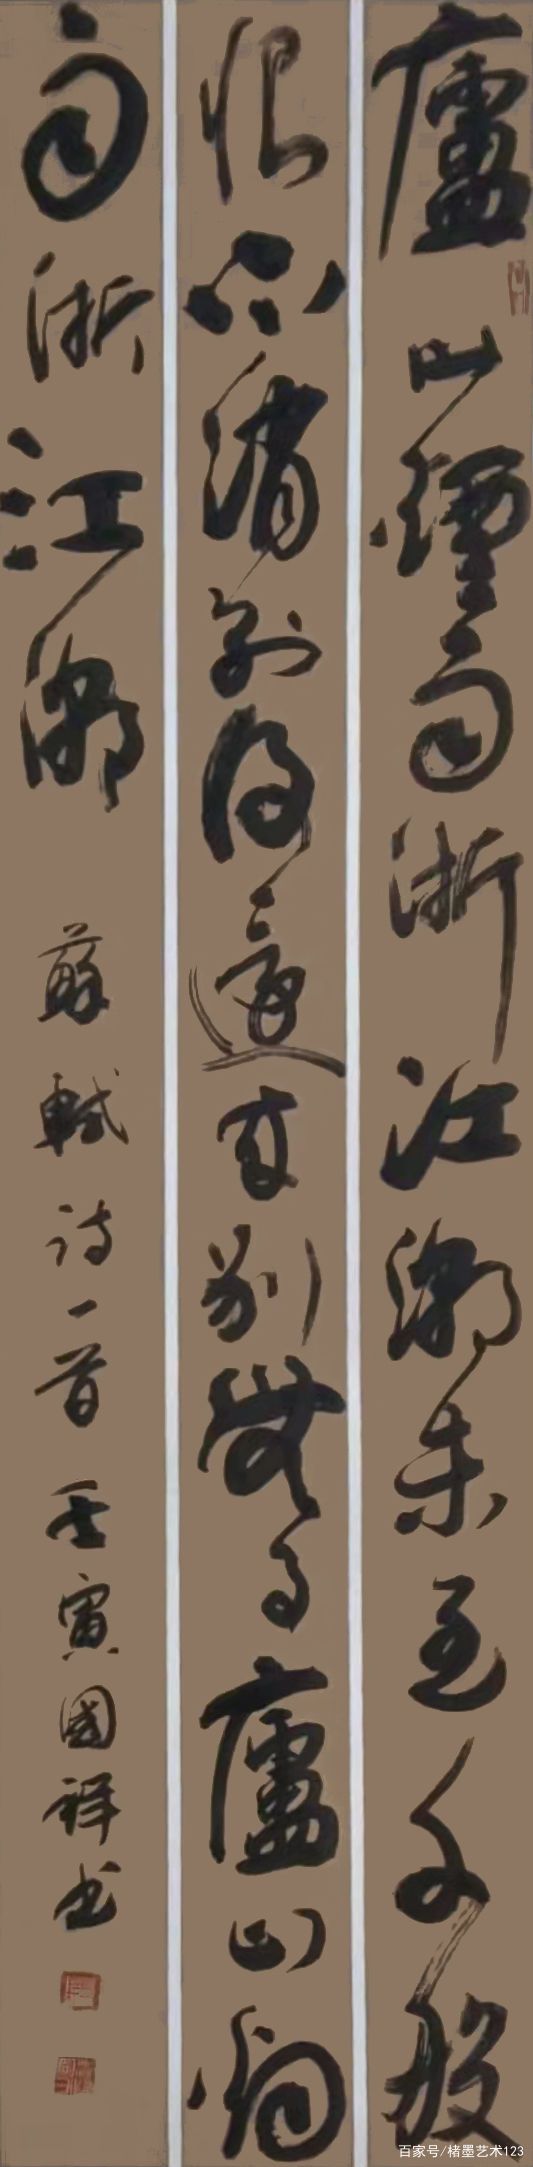 廬山煙雨浙江潮未至千般
恨不消到得還来別無事廬山烟
雨浙江潮
蘇軾詩一首壬寅國祥书
百家号/楮墨艺术123